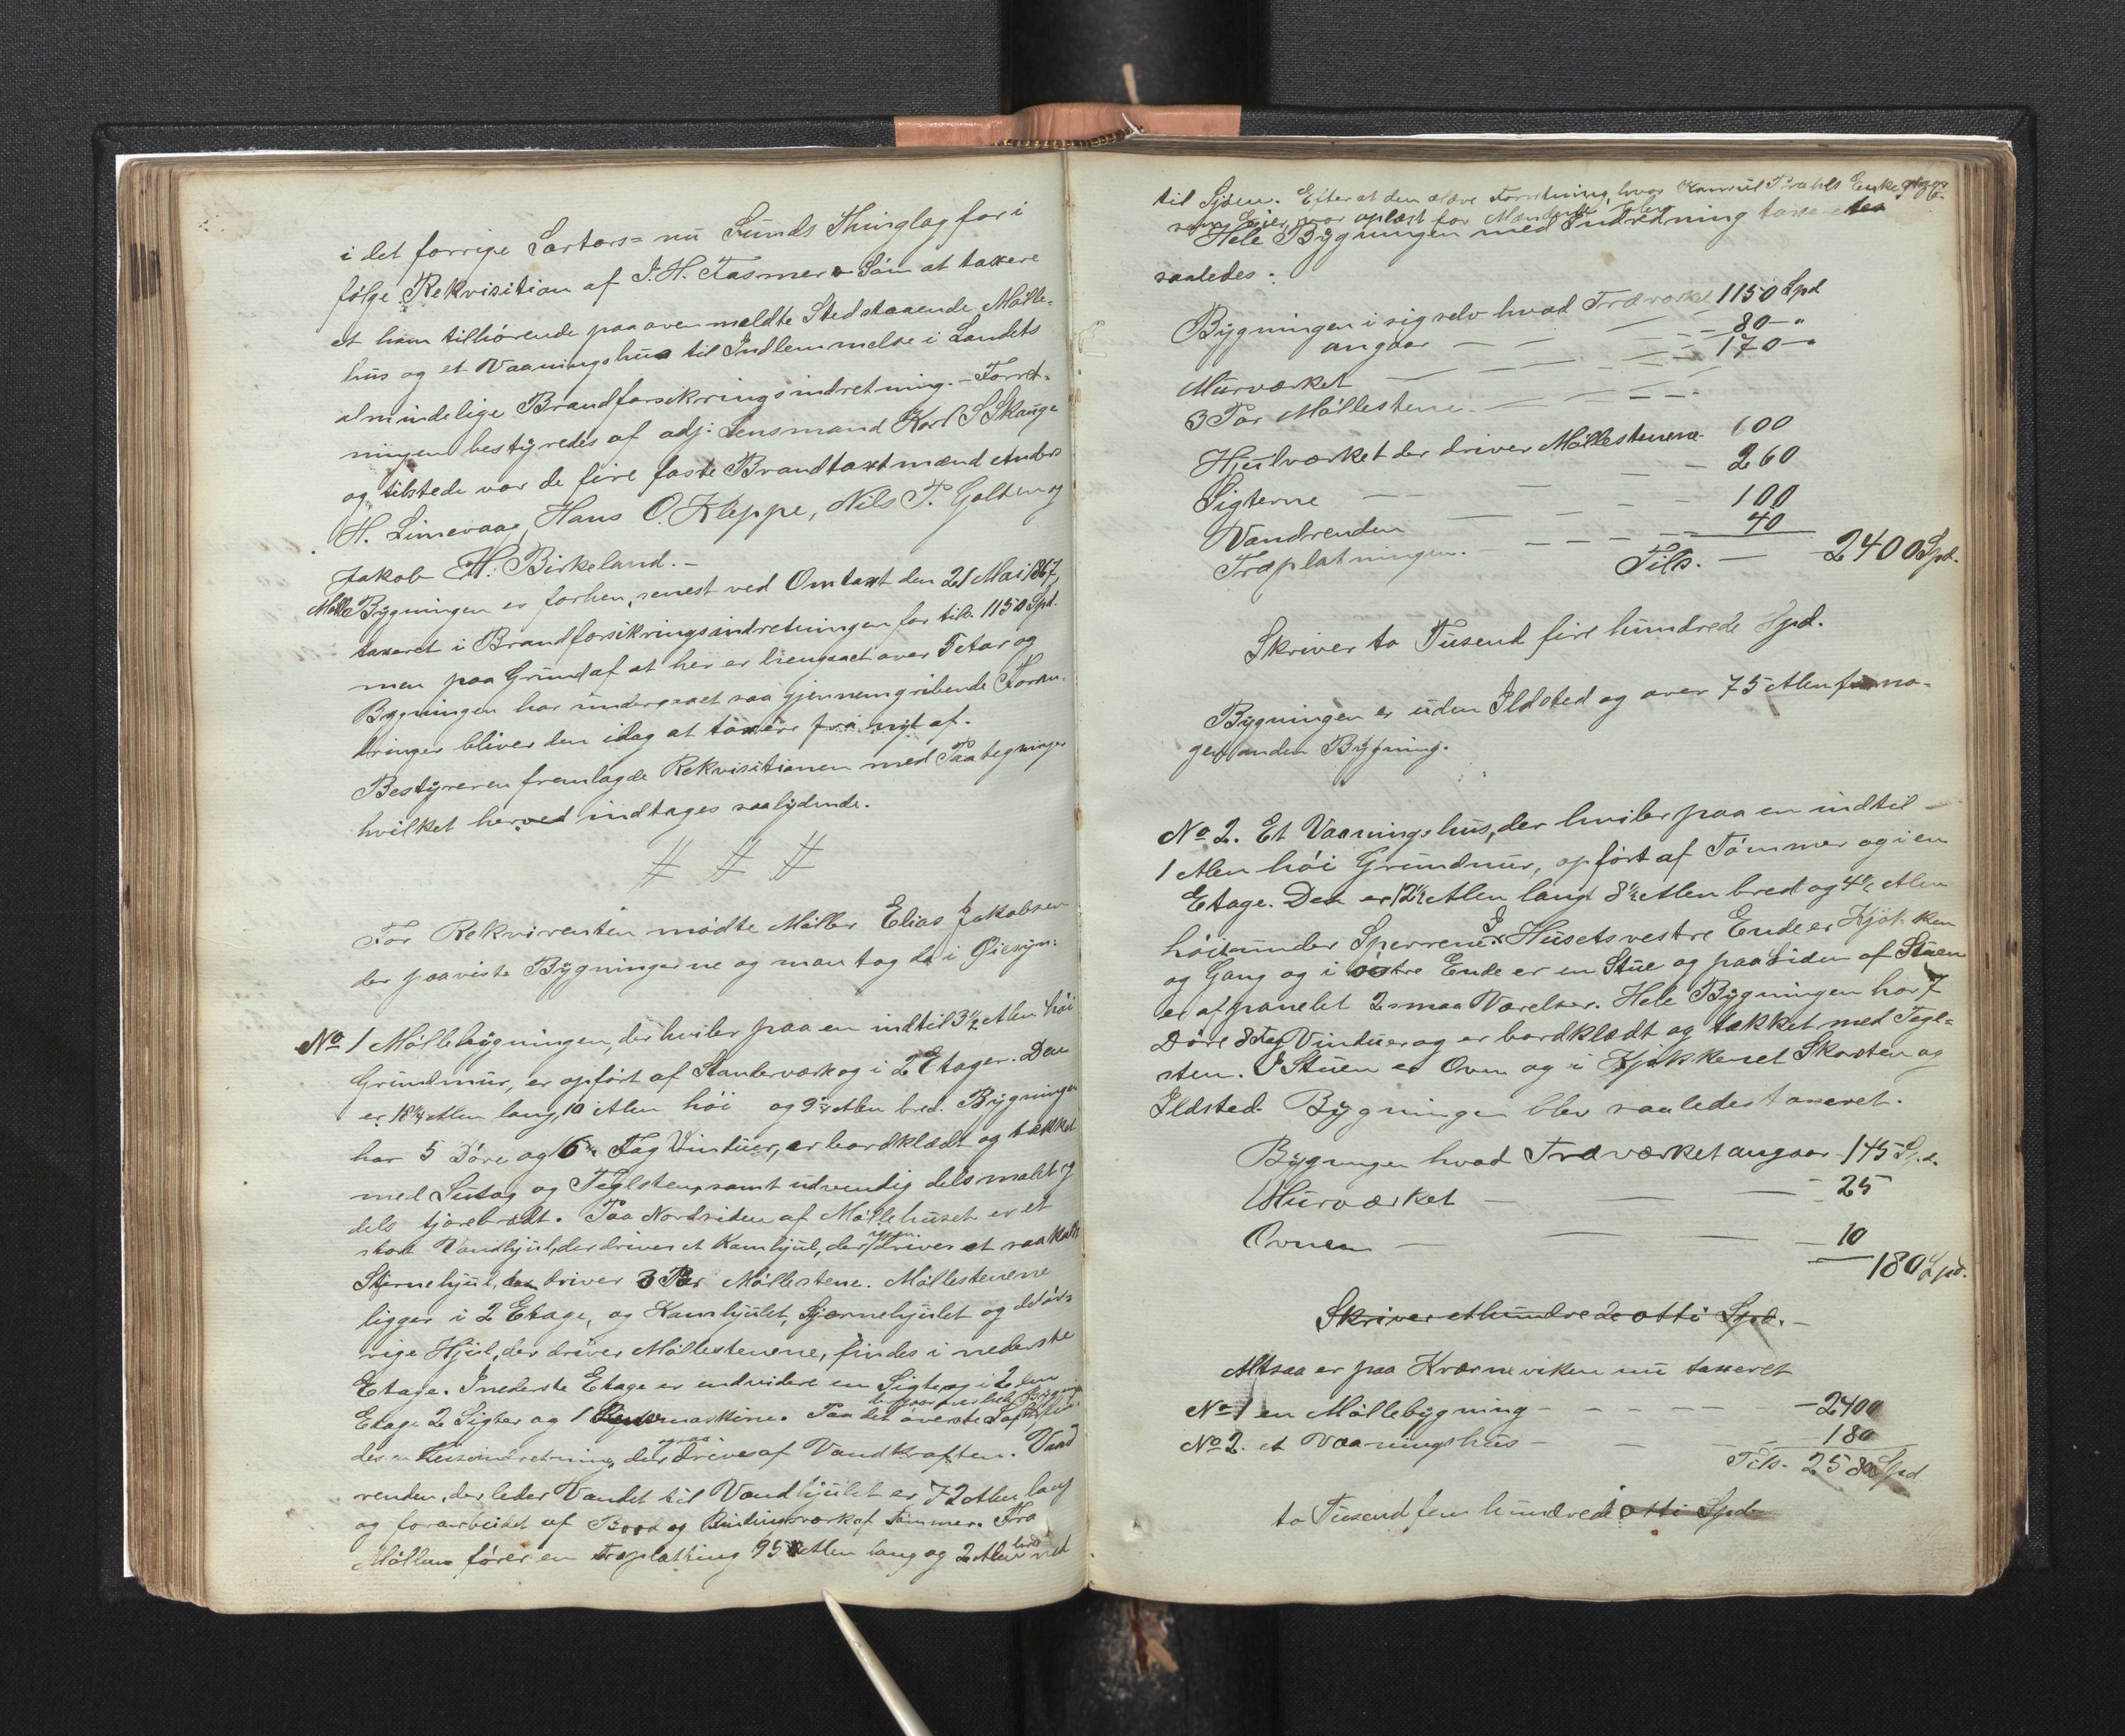 i det forrige Sartors= nu Sunds Thinglag for i
følge Rekvisition af J. H. Fasmer & Søn at taxere
et ham tilhørende paa ovenmeldte Sted staaende Mølle-
hus og et Vaaningshus til Indlemmelse i Landets
almindelige Brandforsikringsindretning. - Forret-
ningen bestyredes af adj: Lensmand Karl S Skauge
og tilstede var de fire faste Brandtaxtmænd Anders
H. Limevaag, Hans O. Kleppe, Nils T. Golten og
Jakob H. Birkeland. -
Mølle Bygningen er forhen, senest ved Omtaxt den 21 Mai 1867,
taxeret i Brandforsikringsindretningen for tils. 1150 Spd.
men paa Grund af at her er hengaaet over 5 Aar og
Bygningen har undergaaet saa gjennemgribende Foran-
dringer bliver den idag at taxere fra nyt af.
Bestyreren fremlagde Rekvisitionen med Paategninger
hvilket herved indtages saalydende.
# # #
For Rekvirenten mødte Møller Elias Jakobsen
der paaviste Bygningerne og man tog da i Øiesyn:
No 1 Møllebygningen, der hviler paa en indtil 3½ Alen høi
Grundmur, er opført af Standerværk og i 2 Etager. Den
er 18¼ Alen lang, 10 Alen høi og 9¾ Alen bred. Bygningen
har 5 Døre og 16 Fag Vinduer, er bordklædt og tækket
med Sutag og Teglsten, samt udvendig dels malet og
dels tjærebrædt. Paa Nordsiden af Møllehuset er et
stort Vandhjul, der driver et Kamhjul, der igjen driver et saakaldt
Stjernehjul, der driver 3 Par Møllestene. Møllestenene
ligger i 2 Etage, og Kamhjulet, Stjernehjulet og det øv-
rige Hjul, der driver Møllestenene, findes i nederste
Etage. I nederste Etage er endvidere en Sigte og i 2den
Etage 2 Sigter og 1 maskine. Paa det øverste Loft, fin-
des en Heiseindretning, der ogsaa drives af Vandkraften. Vand
renden, der leder Vandet til Vandhjulet er 72 Alen lang
og forarbeidet af Bord og Bindingsværk af Tømmer. Fra
Møllen fører en Træplatting 95 Alen lang og 2 Alen bred ned
til Sjøen. Efter at den ældre Forretning, hvor Konsul Prahls Enke
som Eier, var oplæst for Mændene, blev
Hele Bygningen med Indredning taxe-
saaledes:
Bygningen i sig selv hvad Træværket 1150 Spd
angaar - - - 80 - "
Murværket - - - 170 - "
3 Par Møllestene - - -
Hjulværket der driver Møllestenene 600
Sigterne - - - 260
Vandrenden - - - 100
Træplatningen. - - - 40
Tils. - 2400 Spd.
Skriver to Tusend fire hundrede Spd.
Bygningen er uden Ildsted og over 75 Alen fra no-
gen anden Bygning.
No 2. Et Vaaningshus, der hviler paa en indtil
1 Alen høi Grundmur, opført af Tømmer og i en
Etage. Den er 12½ Alen lang 8½ Alen bred og 4½ Alen
høit under Sperrene. I Husets vestre Ende er Kjøkken
og Gang og i østre Ende er en Stue og paa Siden af Stuen
er afpanelet 2 smaa Værelser. Hele Bygningen har 7
Døre 8 Fag Vinduer og er bordklædt og tækket med Tegl-
sten. I Stuen er Ovn og i Kjøkkenet Skorsten og
Ildsted. Bygningen blev saaledes taxeret.
Bygningen hvad Træværket angaar - 145 Spd.
Murværket - - - 25
Ovnen - - - 10
180 Spd.
Skriver et hundrede otti Spd. -
Altsaa er paa Kværneviken nu taxeret
No 1 en Møllebygning - - - 2400
No 2. et Vaaningshus - - - 180
Tils. 2580 Spd
to Tusend fem hundrede otti Spd.